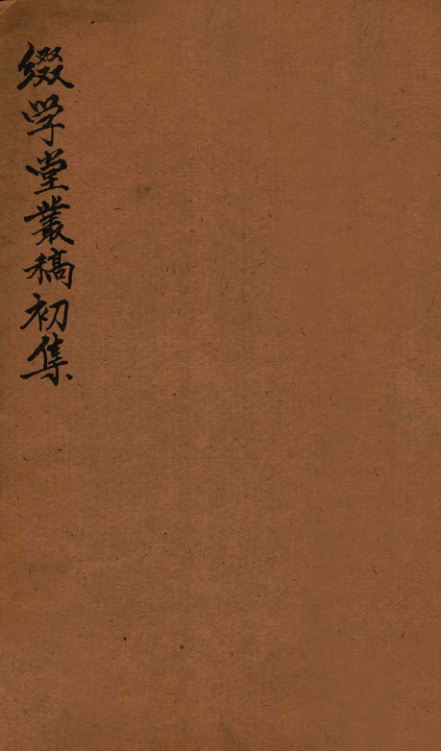 缀学堂叢稿初集